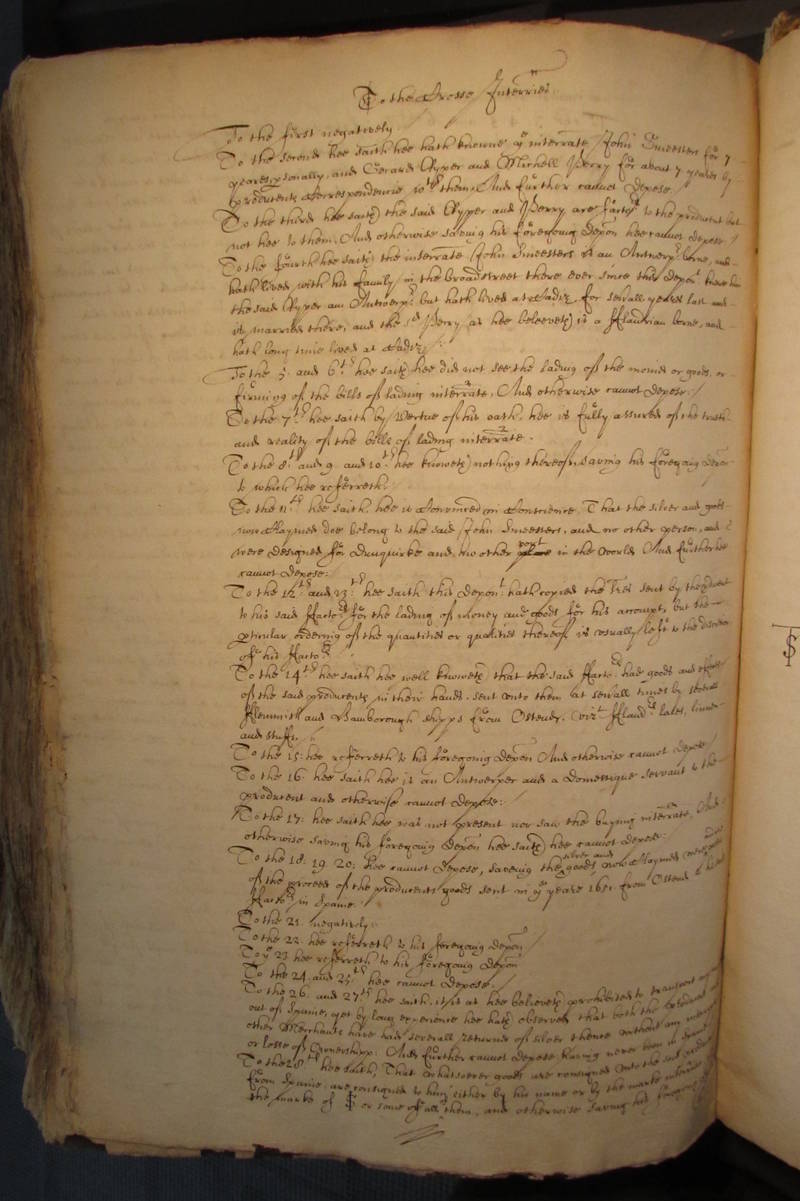 To the Crosse Interries
To the first negatively
To the second hee saith hee hath knowne ye interrate John Smeesters for 7
yeares personally, and Gerard Ryper and Michell Perry for about 7 yeares by
producents Correspondencie wth them, And further cannot depose
To the third hee saith the said Ryper and Perry are factors to the producent but
not hee to them, And otherwise saving his foregoing depon hee cannot depose
To the fourth hee saith the interrate John Smeesters is an Antwerpr borne, and
hath lived with his family in the broadstreet there ever since this depont knew him
the said Ryper an Antwerpr but hath lived at Cadiz for severall yeares last and
is married there, and the sd Perry (as hee beleeveth) is a Flandrian borne, and
hath long time lived at Cadiz
To the 5. and 6th hee saith hee did not see the lading of the monies or goods, or
firming of the bills of lading interrate, And otherwise cannot depose
To the 7th hee saith by vertue of his oath, hee is fully assured of the truth
and reality of the bills of lading interrate.
To the 8th and 9. and 10th hee knoweth nothing thereof, saving his foregoing depon
to which hee referreth
To the 11th hee saith, hee is Convinced in Conscience, That the silver and goods
now claymed doe belong to the said John Smeesters, and no other person, and
were designed for Dunquirke and no other port in the World And further hee
cannot depose:
To the 12th and 13th hee saith this depont hath copied the lres sent by the producent
to his said Factors for the lading of money and goods for his accompt, but the
pticular ordering of the quantities or qualities thereof is usually left to the discretion
of his Factors
To the 14th hee saith hee well knoweth that the said Factors had goods and effects
of the said producents in their hands, sent unto them at severall times by severall
Flemmish and Hamborough shipps from Ostend, vizt Flandrs laces, linnen
and stuffs
To the 15. hee referreth to his foregoing depon And otherwise cannot depose
To the 16 hee saith hee is an Antwerper and a Domestique servant to the
producent and otherwise cannot depose:
To the 17. hee saith hee was not present nor saw the buying interrate, And
otherwise saving his foregoing depon hee saith hee cannot depose
To the 18. 19. 20: hee cannot depose, saveing the silver and goods now claymed
of the proceed of the producents goods sent in ye yeare 1651 from Ostend to his
Factors in Spaine
To the 21. negatively
To the 22. hee referreth to his foregoing depon
To ye 23 hee referreth to his foregoing depon
To the 24 and 25th hee cannot depose.
To the 26. and 27th hee saith, it is as hee believeth prohibited to transport
out of Spaine, yet by long experience hee hath observed that both the producent and
other Merchants have had severall returnes of silver thence without any
or losse of Ownershipp: And further cannot depose having never been in Spaine
To the 28th hee saith, That whatsoever goods are consigned unto the said producent
from Spaine are consigned to him either by his name or by the marke
the marke of $ or some of all them, and otherwise saving his foregoing